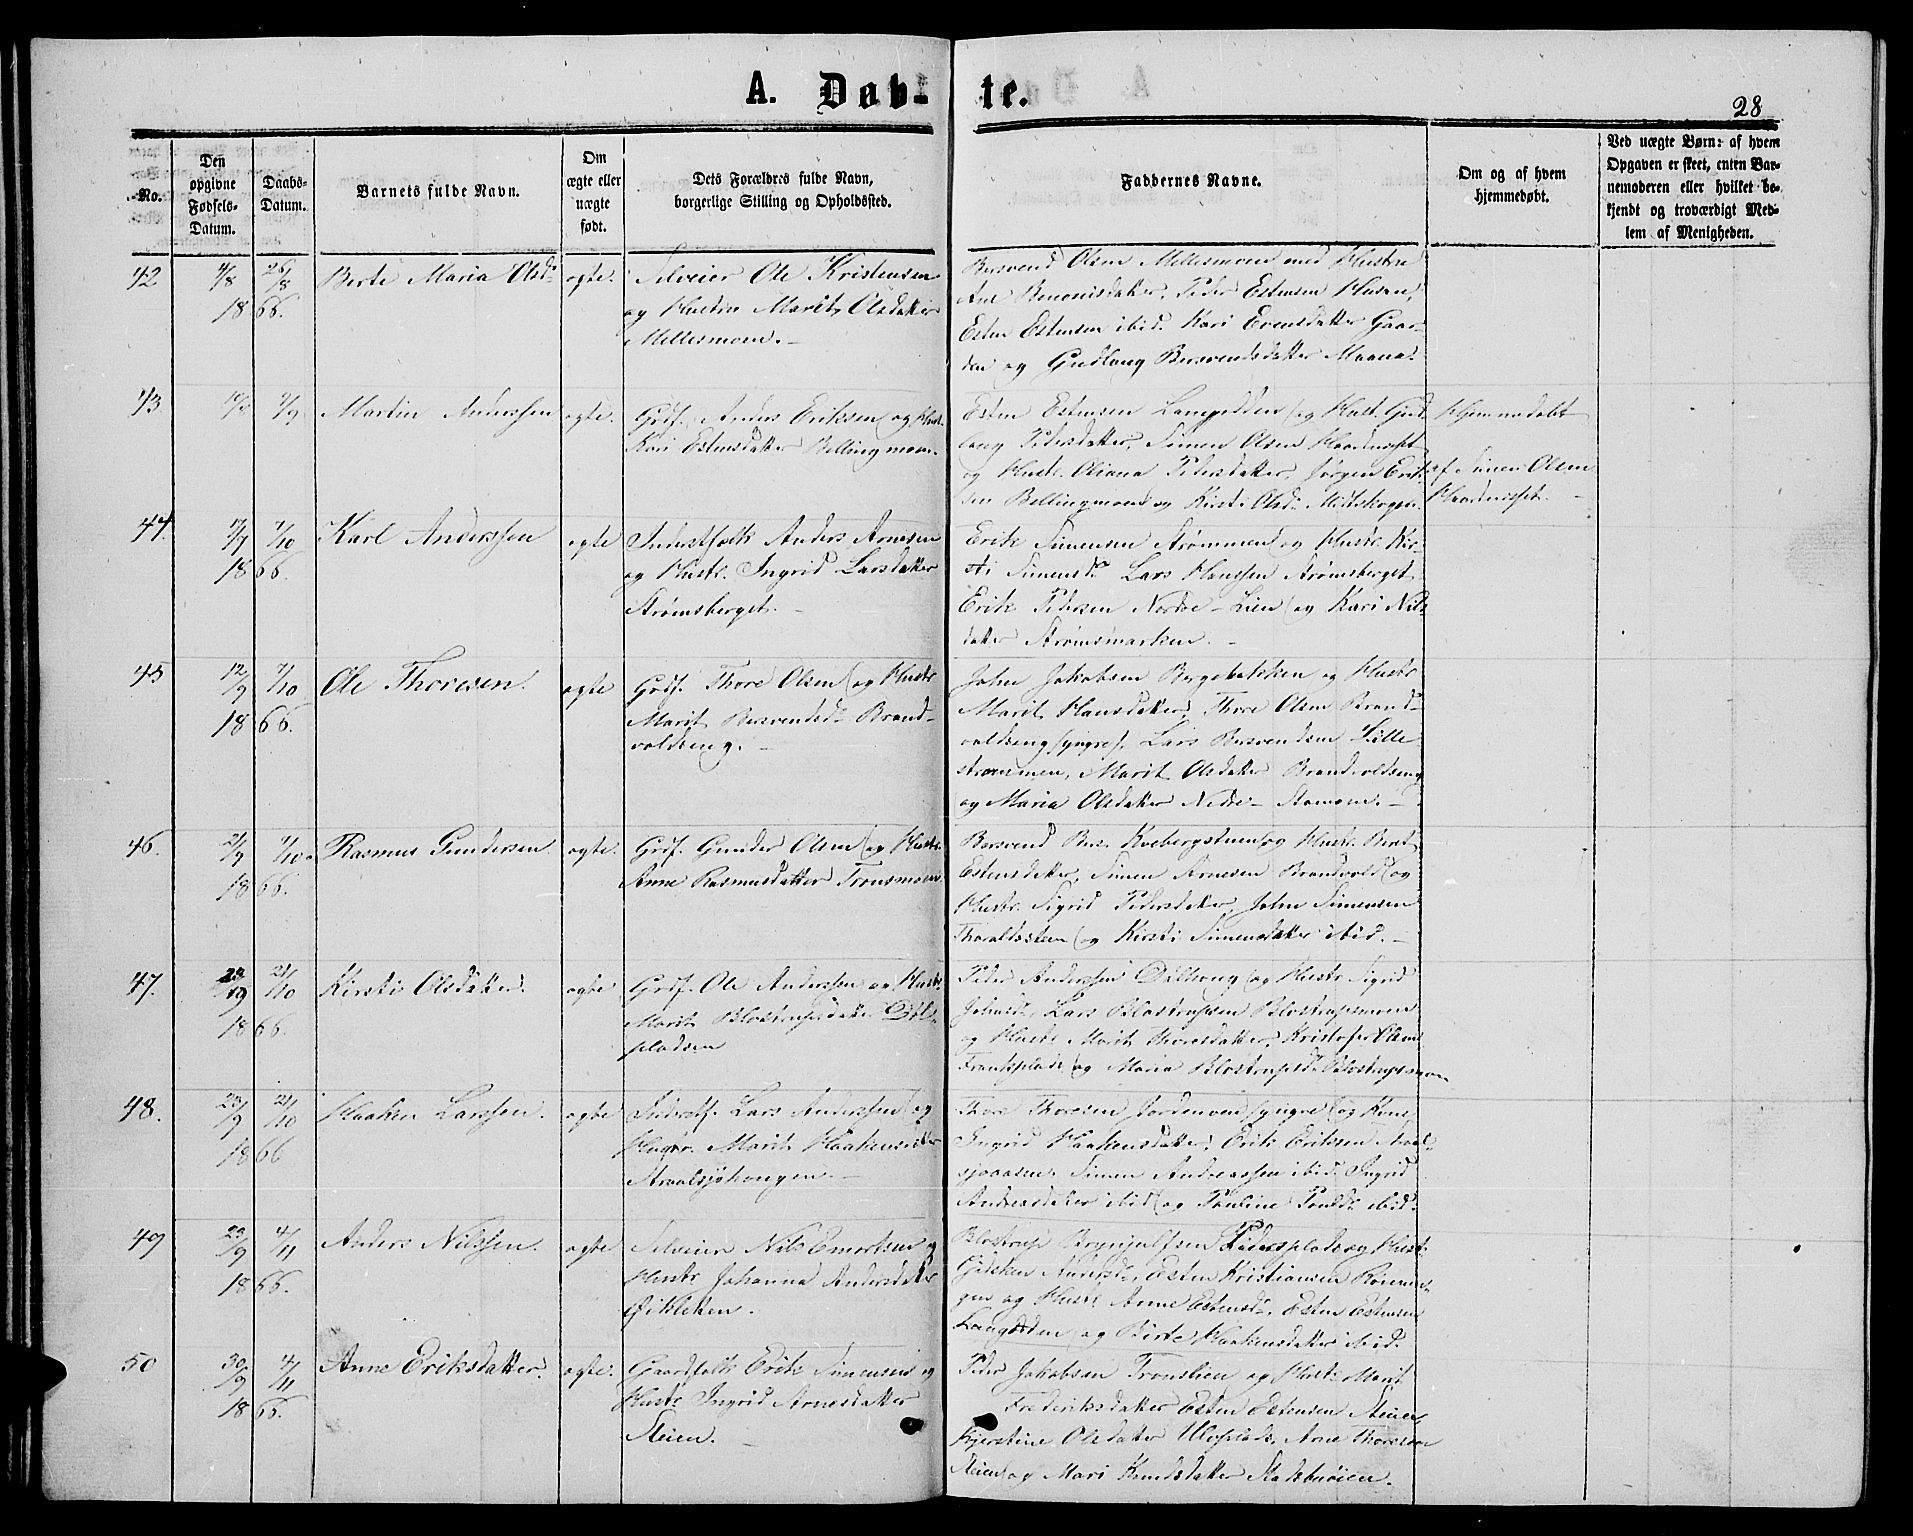 A. Døb- te.
28
No.
Den opgivne Fødsels-Datum.
Daabs-Datum.
Barnets fulde Navn.
Om ægte eller uægte født.
Dets Forældres fulde Navn, borgerlige Stilling og Opholdssted.
Faddernes Navne.
Om og af hvem hjemmedøbt.
Ved uægte Børn: af hvem Opgaven er skeet, enten Barnemoderen eller hvilket bekjendt og troværdigt Medlem af Menigheden.
42
4/8
26/8
1866.
Berte Maria Olsd.
ægte.
Selveier Ole Kristensen
og Hustru Marit Olsdatter
Mellesmoen.
Bersvend Olsen Mellesmoen med Hustru
Ane Benonisdatter, Peder Estensen Husan,
Esten Estensen ibid. Kari Evensdatter Gaar-
den og Gudlaug Bersvendsdatter Maana.
43
2/9
Martin Anderssen
ægte.
Grdf. Anders Eriksen og Hust.
Kari Estensdatter Bellingmoen.
Esten Estensen Langodden og Hust. Gud-
laug Pedersdatter, Simen Olsen
og Hustr. Oliana Pedersdatter, Jørgen Erik-
sen Bellingmoen og Kirsti Olsd. Midtskogen.
Hjemmedøbt
af Simen Olsen
44.
17/7
7/10
1866.
Karl Anderssen
ægte
Inderstfolk Anders Arnesen
og Hustr. Ingrid Larsdatter
Strømsberget.
Erik Simensen Strømmen og Hustr. Kir-
sti Simensd. Lars Hanssen Strømsberget
Erik Pedersen Nordre-Lien og Kari Nils-
datter Strømsmarken.
45
12/9
7/10
1866.
Ole Thoresen.
ægte
Grdf. Thore Olsen og Hustr.
Marit Bersvendsd. Brand-
voldseng.
John Jakobsen Bergebakken og Hustr.
Marit Hansdatter, Thore Olsen Brand-
voldseng yngre, Lars Bersvendsen Lille
strømmen, Marit Olsdatter Brandvoldseng
og Maria Olsdatter Nedre- Stamoen.
46.
21/9
7/10
1866.
Rasmus Gundersen.
ægte.
Grdf. Gunder Olsen og Hustr.
Anne Rasmusdatter Tronsmoen
Bersvend Bers. Kvebergstuen og Hustr. Berit
Estensdatter, Simen Arnesen Brandvold og
Hustr. Sigrid Pedersdatter, John Simensen
Thoraldssteen og Kirsti Simensdatter ibid.
47.
21/10
1866.
Kirsti Olsdatter.
ægte
Grdf. Ole Anderssen og Hustr.
Marit Blostrupsdatter
pladsen
Peder Anderssen Dalhoug og Hustr. Sigrid
Johnsd. Lars Blostrupsen Blostrupsmoen
og Hustr. Marit Thoresdatter, Kristofer Olsen
og Maria Blostrupsd. Blostrupsmoen
48.
23/9
21/10
1866
Haaken Larssen.
ægte
Inderstf. Lars Anderssen og
Hustr. Marit Haakensdatter
Atnelsjøhaugen.
Thore Thoresen Jordemoen yngre og Kone
Ingrid Haakensdatter, Erik Eriksen
Simen Andreassen ibid. Ingrid
Andreasdatter ibid og Pauline Poulsd. ibid.
49
23/9
4/11
1866.
Anders Nilssen.
ægte
Selveier Nils Emertsen og
Hustr. Johanna Andersdatter
Blostrup Brynjulfsen og Hust.
Esten Kristiansen
og Hustr. Anne Estensd. Esten Estensen
Langodden og Birte Haakensdatter ibid.
50
30/9
4/11
1866.
Anne Eriksdatter.
ægte.
Gaardfolk Erik Simensen og
Hustr. Ingrid Arnesdatter
Steien.
Peder Jakobsen Tronslien og Hustr. Marit
Frederiksdatter Esten Estensen Steien
Kjerstine Olsdatter Arne Thoresen
Steien og Mari Knudsdatter Madsbuøien.